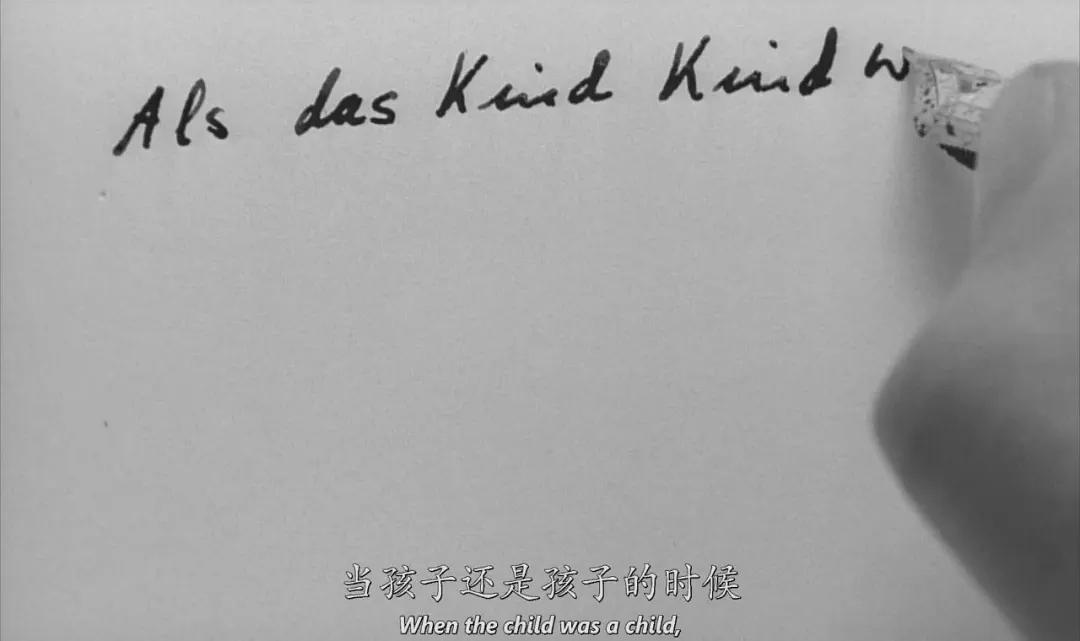 Als das Kind Kind w
当孩子还是孩子的时候
When the child was a child,